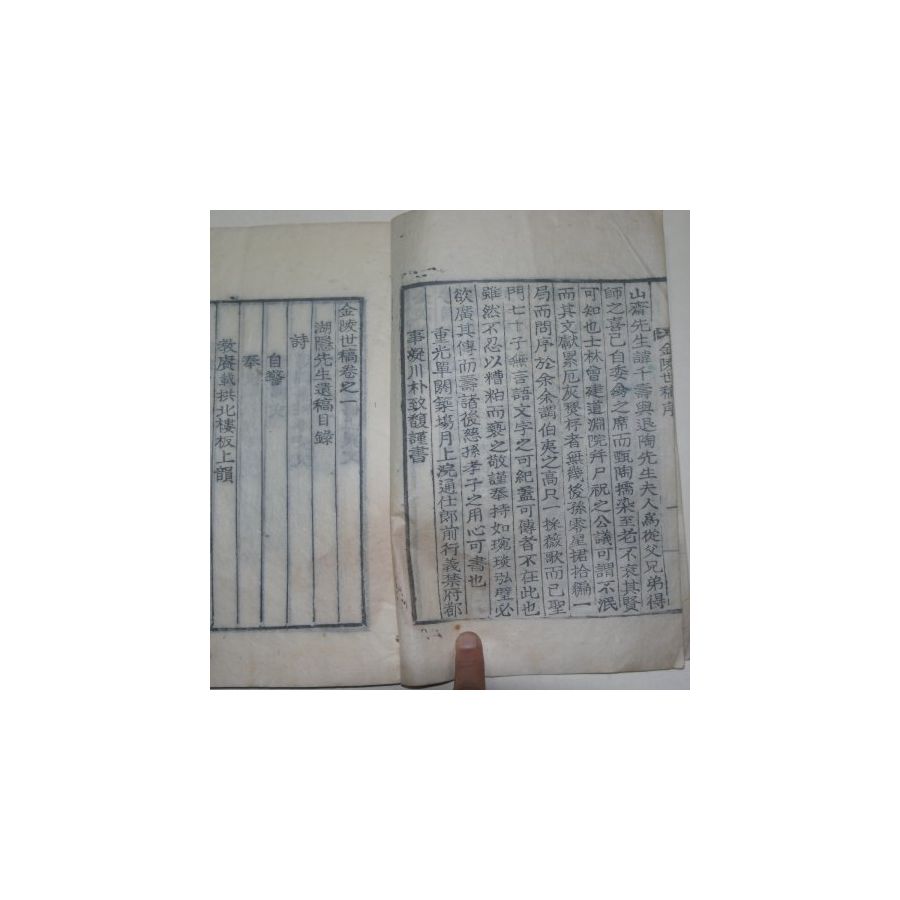 金陵世稿序
山齋先生諱千壽與退陶先生夫人爲從父兄弟得
師之喜己自委禽之席而甄陶擩染至老不衰其賢
可知也士林曾建道淵院并尸祝之公議可謂不泯
而其文獻累厄灰燹存者無幾後孫零星捃拾編一
局而問序於余余謂伯夷之高只一採薇歌而已聖
門七十子無言語文字之可紀盖可傳者不在此也
雖然不忍以糟粕而褻之敬謹奉持如琬琰弘璧必
欲廣其傳而壽諸後慈孫孝子之用心可書也
重光單閼築場月上浣通仕郎前行義禁府都
事凝川朴致馥謹書
金陵世稿卷之一
湖隱先生遺稿目錄
詩
自警
奉
教廣載拱北樓板上韻